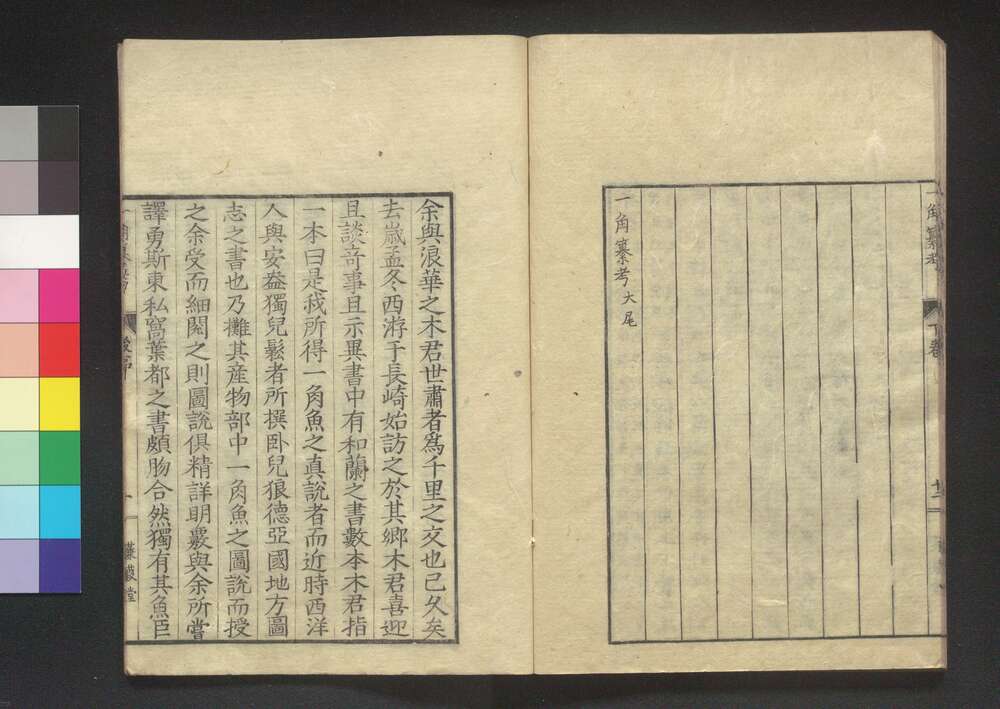 一角纂考
下卷
一角纂考大尾
余與浪華之木君世肅者爲千里之交也已久矣
去歲孟冬西游于長崎始訪之於其鄉木君喜迎
且談奇事且示異書中有和蘭之書數本木君指
一本曰是我所得一角魚之真說者而近時西洋
人與安盎獨兒鬆者所撰卧兒狼德亞國地方圖
志之書也乃攤其産物部中一角魚之圖說而授
之余受而細閱之則圖說俱精詳明覈與余所嘗
譯勇斯東私窩葉都之書頗脗合然獨有其魚臣
蒹葭堂